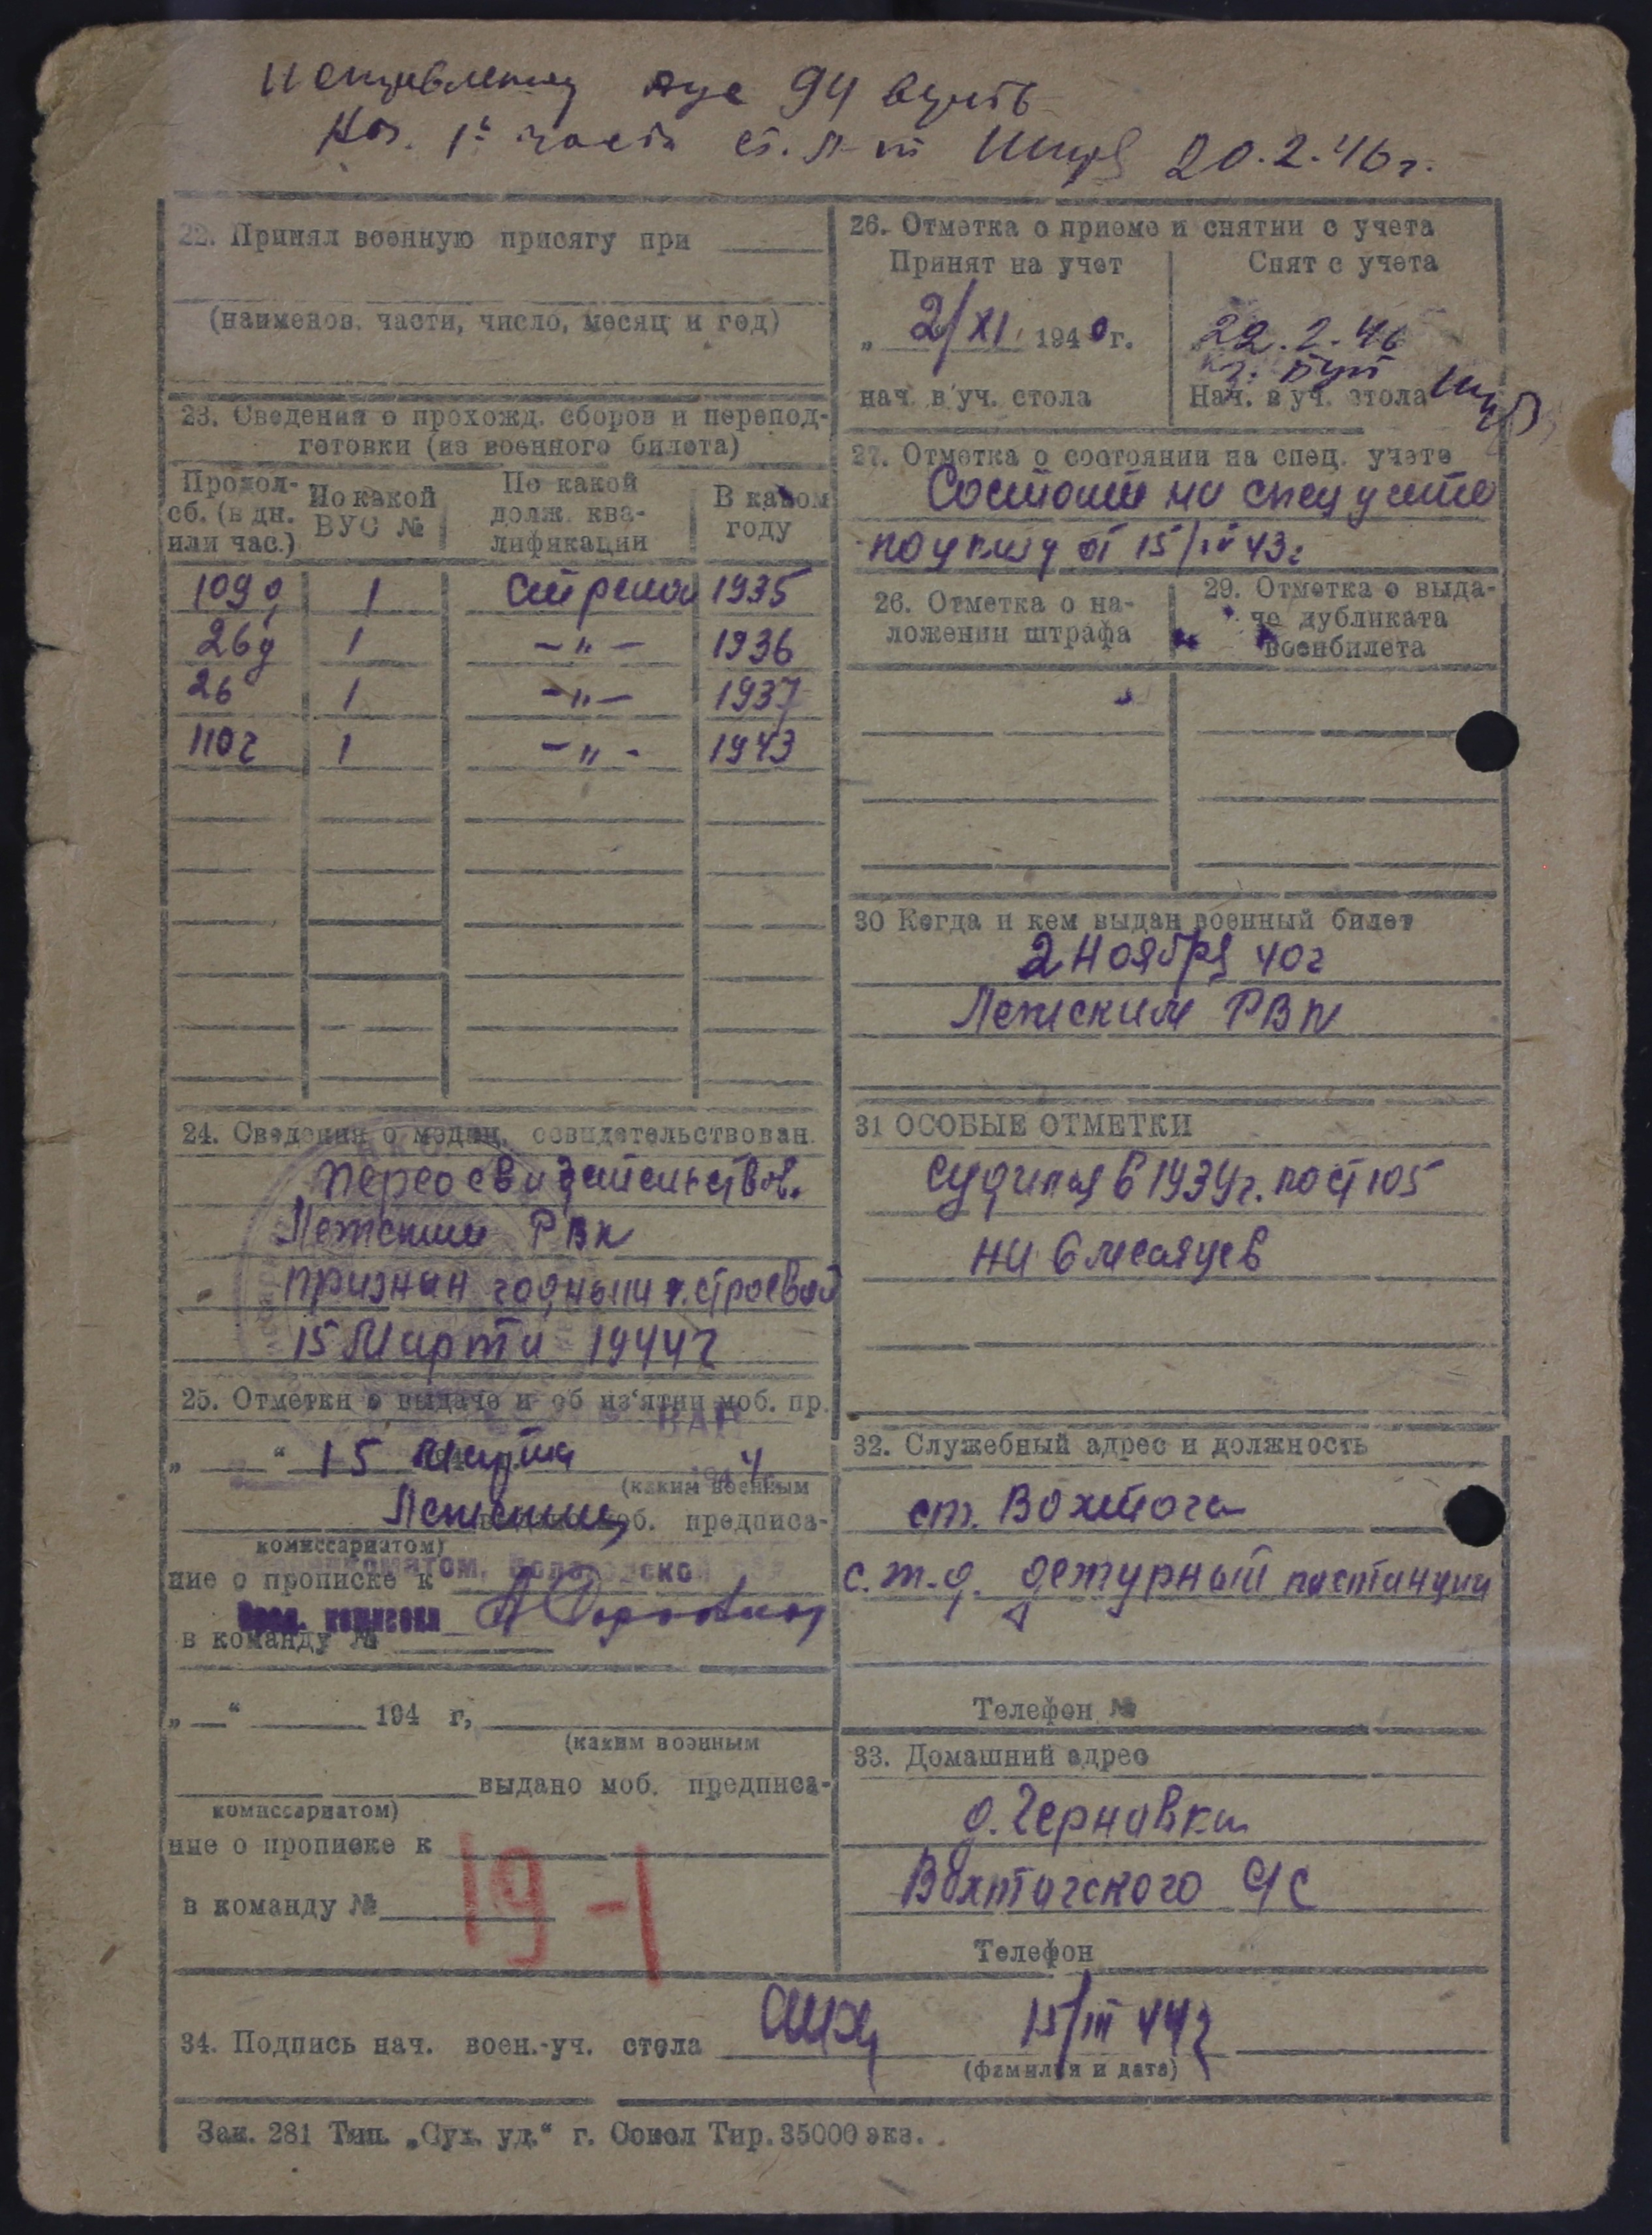 94
20.2.46г.
22. Принял военную присягу при
(наименов. части, число, месяц и год)
23. Сведения о прохожд. сборов и перепод-
готовки (из военного билета)
Продол-
сб. (в дн.
или час.)
По какой
ВУС №
По какой
долж. ква-
лификации
В каком
году
109 д 1 стрелок 1935
26 д 1 -„- 1936
26 1 -„- 1937
110 г 1 -„- 1943
24. Сведения о медиц. освидетельствован.
Переосвидетельствов.
Лежским РВК
признан годным к строевой
15 Марта 1944 г
25. Отметки о выдаче и об из‘ятии моб. пр.
„ “ 15 Марта 1944
(каким военным
Лежским моб. предписа-
комиссариатом)
ние о прописке к
Пред. комиссии
в команду №
„ “ 194 г,
(каким военным
выдано моб. предписа-
комиссариатом)
ние о прописке к
в команду №
19-1
26. Отметка о приеме и снятии с учета
Принят на учет
„ 2/XI 1940 г.
нач. в уч. стола
Снят с учета
22.2.46
Нач. в уч. стола
27. Отметка о состоянии на спец. учете
Состоит на спец учете
по укпл д от 15/IV 43г
26. Отметка о на-
ложении штрафа
29. Отметка о выда-
че дубликата
военбилета
30 Когда и кем выдан военный билет
2 Ноября 40 г
Лежским РВК
31 ОСОБЫЕ ОТМЕТКИ
судился в 1939г. по ст 105
на 6 месяцев
32. Служебный адрес и должность
ст. Вохтога
с.ж.д. дежурный по станции
Телефон №
33. Домашний адрес
д. Чернавка
Вохтогского С/С
Телефон
34. Подпись нач. воен.-уч. стола 15/III 44 г
(фамилия и дата)
Зак. 281 Тип. „Сух. уд.“ г. Сокол Тир. 35000 экз.